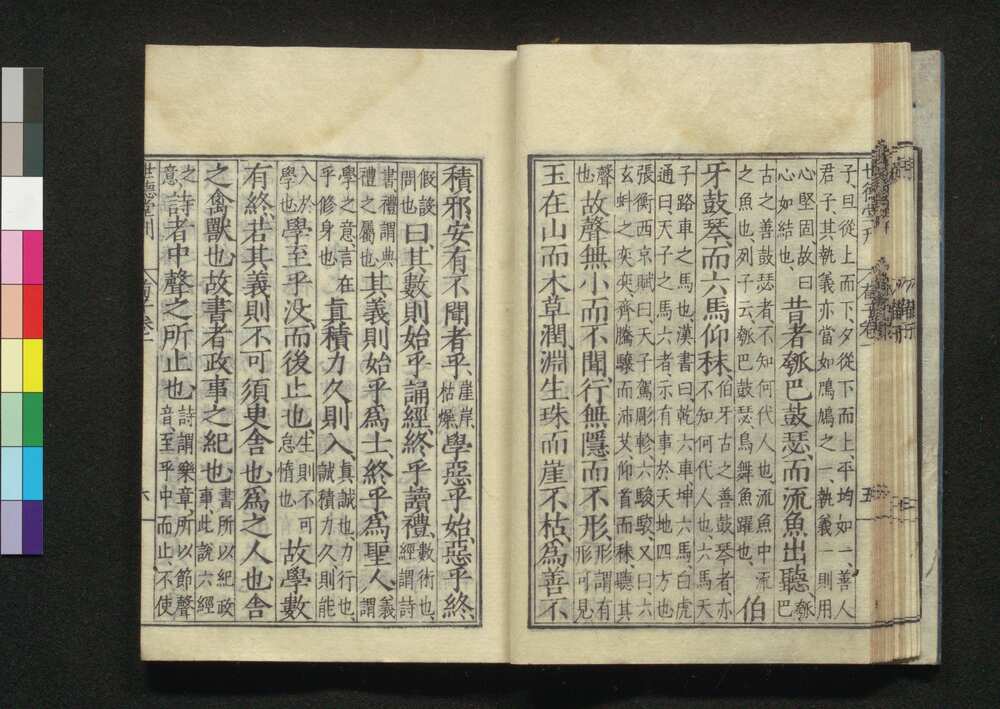 世德堂刊 荀子卷一 五
子旦從上而下夕從下而上平均如一善人
君子其執義亦當如鳲鳩之一執義一則用
心堅固故曰
心如結也
昔者瓠巴鼓瑟而流魚出聽
瓠
巴
古之善鼓瑟者不知何代人也流魚中流
之魚也列子云瓠巴鼓瑟鳥舞魚躍也
伯
牙鼓琴而六馬仰秣
伯牙古之善鼓琴者亦
不知何代人也六馬天
子路車之馬也漢書曰乾六車坤六馬白虎
通曰天子之馬六者示有事於天地四方也
張衡西京賦曰天子駕彫軫六駿駮又曰六
玄虯之奕奕齊騰驤而沛艾仰首而秣聽其
聲
也
故聲無小而不聞行無隱而不形
形謂有
形可見
玉在山而木草潤淵生珠而崖不枯爲善不
積邪安有不聞者乎
崖岸
枯燥
學惡乎始惡乎終
假設
問也
曰其數則始乎誦經終乎讀禮
數術也
經謂詩
書禮謂典
禮之屬也
其義則始乎爲士終乎爲聖人
義
謂
學之意言在
乎修身也
眞積力久則入
眞誠也力行也
誠積力久則能
入於
學也
學至乎没而後止也
生則不可
怠惰也
故學數
有終若其義則不可須臾舍也爲之人也舍
之禽獸也故書者政事之紀也
書所以紀政
事此說六經
之
意
詩者中聲之所止也
詩謂樂章所以節聲
音至乎中而止不使
世德堂刊 卷一 六